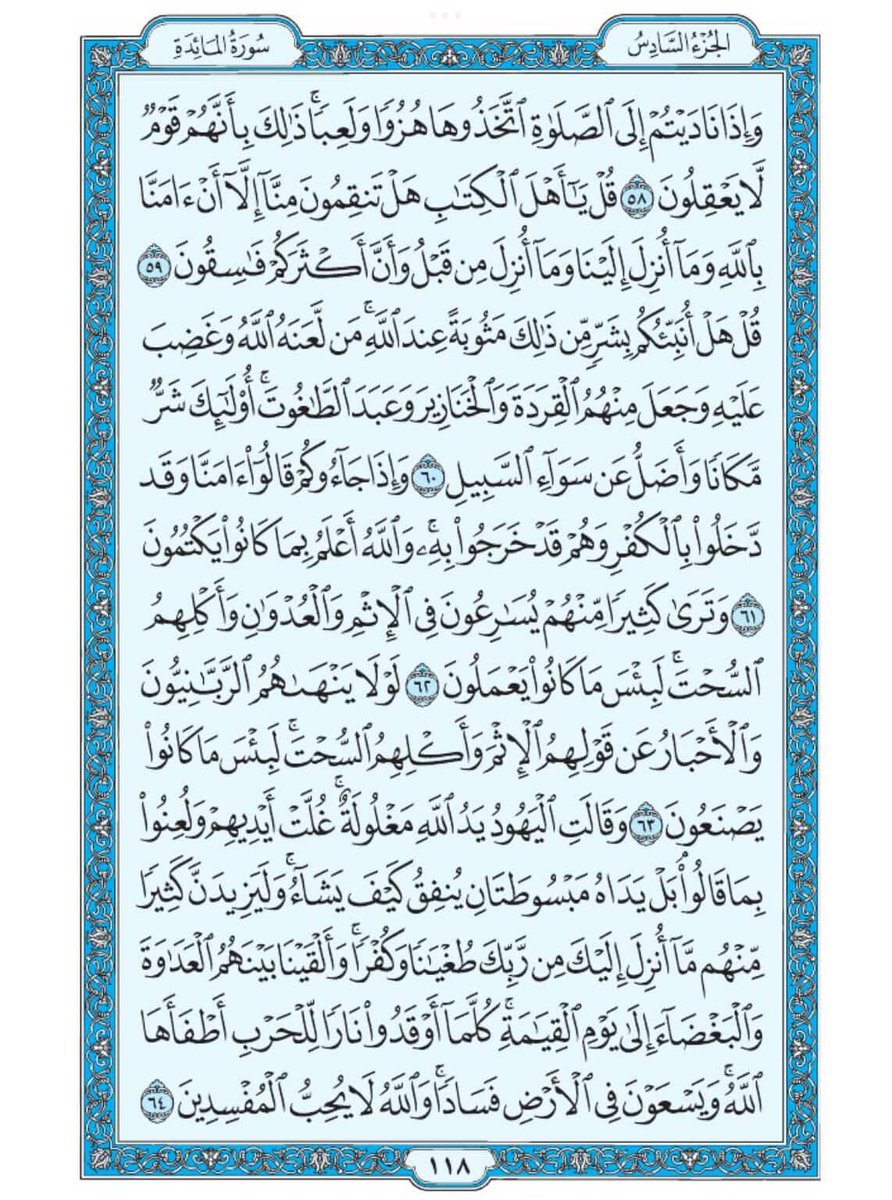 الجُزْءُ السَّادِسُ
سُورَةُ المَائِدَةِ
وَإِذَا نَادَيْتُمْ إِلَى ٱلصَّلَوٰةِ ٱتَّخَذُوهَا هُزُوًا وَلَعِبًاۚ ذَٰلِكَ بِأَنَّهُمْ قَوْمٌ
لَّا يَعْقِلُونَ ٥٨ قُلْ يَـٰٓأَهْلَ ٱلْكِتَـٰبِ هَلْ تَنقِمُونَ مِنَّآ إِلَّآ أَنْ ءَامَنَّا
بِٱللَّهِ وَمَآ أُنزِلَ إِلَيْنَا وَمَآ أُنزِلَ مِن قَبْلُ وَأَنَّ أَكْثَرَكُمْ فَـٰسِقُونَ ٥٩
قُلْ هَلْ أُنَبِّئُكُم بِشَرٍّ مِّن ذَٰلِكَ مَثُوبَةً عِندَ ٱللَّهِۚ مَن لَّعَنَهُ ٱللَّهُ وَغَضِبَ
عَلَيْهِ وَجَعَلَ مِنْهُمُ ٱلْقِرَدَةَ وَٱلْخَنَازِيرَ وَعَبَدَ ٱلطَّـٰغُوتَۚ أُو۟لَـٰٓئِكَ شَرٌّ
مَّكَانًا وَأَضَلُّ عَن سَوَآءِ ٱلسَّبِيلِ ٦٠ وَإِذَا جَآءُوكُمْ قَالُوٓا۟ ءَامَنَّا وَقَد
دَّخَلُوا۟ بِٱلْكُفْرِ وَهُمْ قَدْ خَرَجُوا۟ بِهِۦۚ وَٱللَّهُ أَعْلَمُ بِمَا كَانُوا۟ يَكْتُمُونَ
٦١ وَتَرَىٰ كَثِيرًا مِّنْهُمْ يُسَـٰرِعُونَ فِى ٱلْإِثْمِ وَٱلْعُدْوَٰنِ وَأَكْلِهِمُ
ٱلسُّحْتَۚ لَبِئْسَ مَا كَانُوا۟ يَعْمَلُونَ ٦٢ لَوْلَا يَنْهَىٰهُمُ ٱلرَّبَّـٰنِيُّونَ
وَٱلْأَحْبَارُ عَن قَوْلِهِمُ ٱلْإِثْمَ وَأَكْلِهِمُ ٱلسُّحْتَۚ لَبِئْسَ مَا كَانُوا۟
يَصْنَعُونَ ٦٣ وَقَالَتِ ٱلْيَهُودُ يَدُ ٱللَّهِ مَغْلُولَةٌۚ غُلَّتْ أَيْدِيهِمْ وَلُعِنُوا۟
بِمَا قَالُوا۟ۘ بَلْ يَدَاهُ مَبْسُوطَتَانِ يُنفِقُ كَيْفَ يَشَآءُۚ وَلَيَزِيدَنَّ كَثِيرًا
مِّنْهُم مَّآ أُنزِلَ إِلَيْكَ مِن رَّبِّكَ طُغْيَـٰنًا وَكُفْرًاۚ وَأَلْقَيْنَا بَيْنَهُمُ ٱلْعَدَٰوَةَ
وَٱلْبَغْضَآءَ إِلَىٰ يَوْمِ ٱلْقِيَـٰمَةِۚ كُلَّمَآ أَوْقَدُوا۟ نَارًا لِّلْحَرْبِ أَطْفَأَهَا
ٱللَّهُۚ وَيَسْعَوْنَ فِى ٱلْأَرْضِ فَسَادًاۚ وَٱللَّهُ لَا يُحِبُّ ٱلْمُفْسِدِينَ ٦٤
١١٨